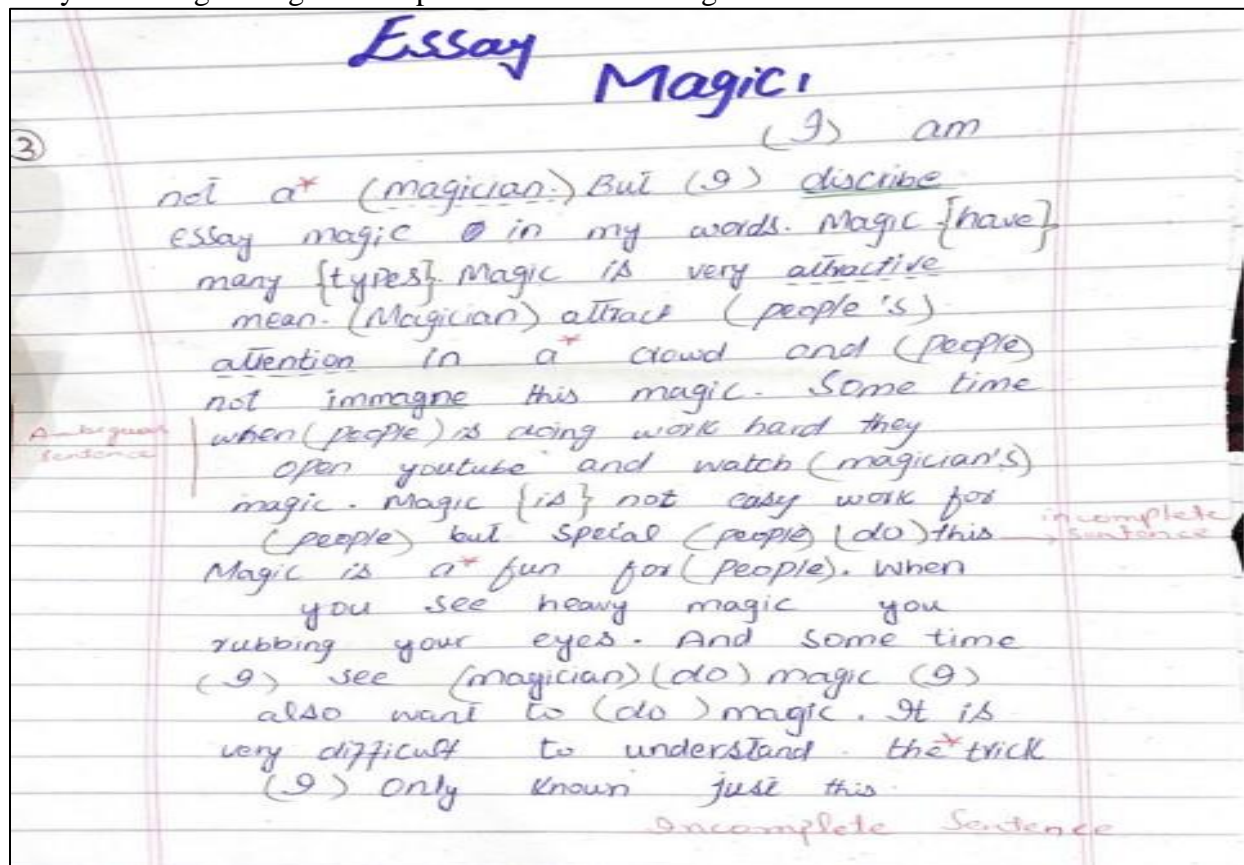 Essay
Magic,
3
(I) am
not a* (magician.) But (I) discribe
essay magic in my words. Magic {have}
many {types}. Magic is very attractive
mean. (Magician) attract (people's)
attention in a* crowd and (people)
not immagne this magic. Some time
Ambiguous
sentence
when (people) is doing work hard they
open youtube and watch (magician's)
magic. Magic {is} not easy work for
(people) but special (people) (do) this
incomplete
sentence
Magic is a* fun for (people). When
you see heavy magic you
rubbing your eyes. And some time
(I) see (magician) (do) magic (I)
also want to (do) magic. It is
very difficult to understand the* trick
(I) only known just this.
Incomplete Sentence